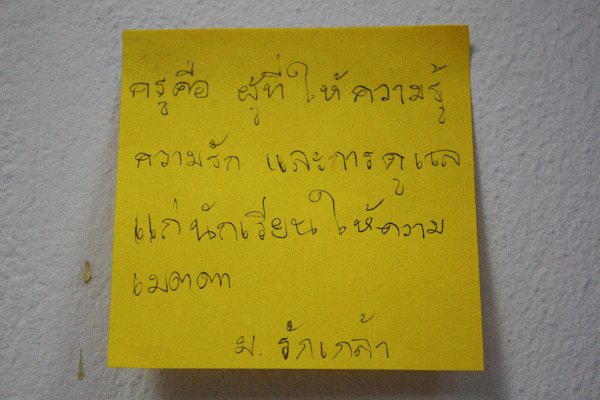 ครูคือ ผู้ที่ให้ความรู้
ความรัก และการดูแล
แก่นักเรียนให้ความ
เมตตา
ม. รักเกล้า